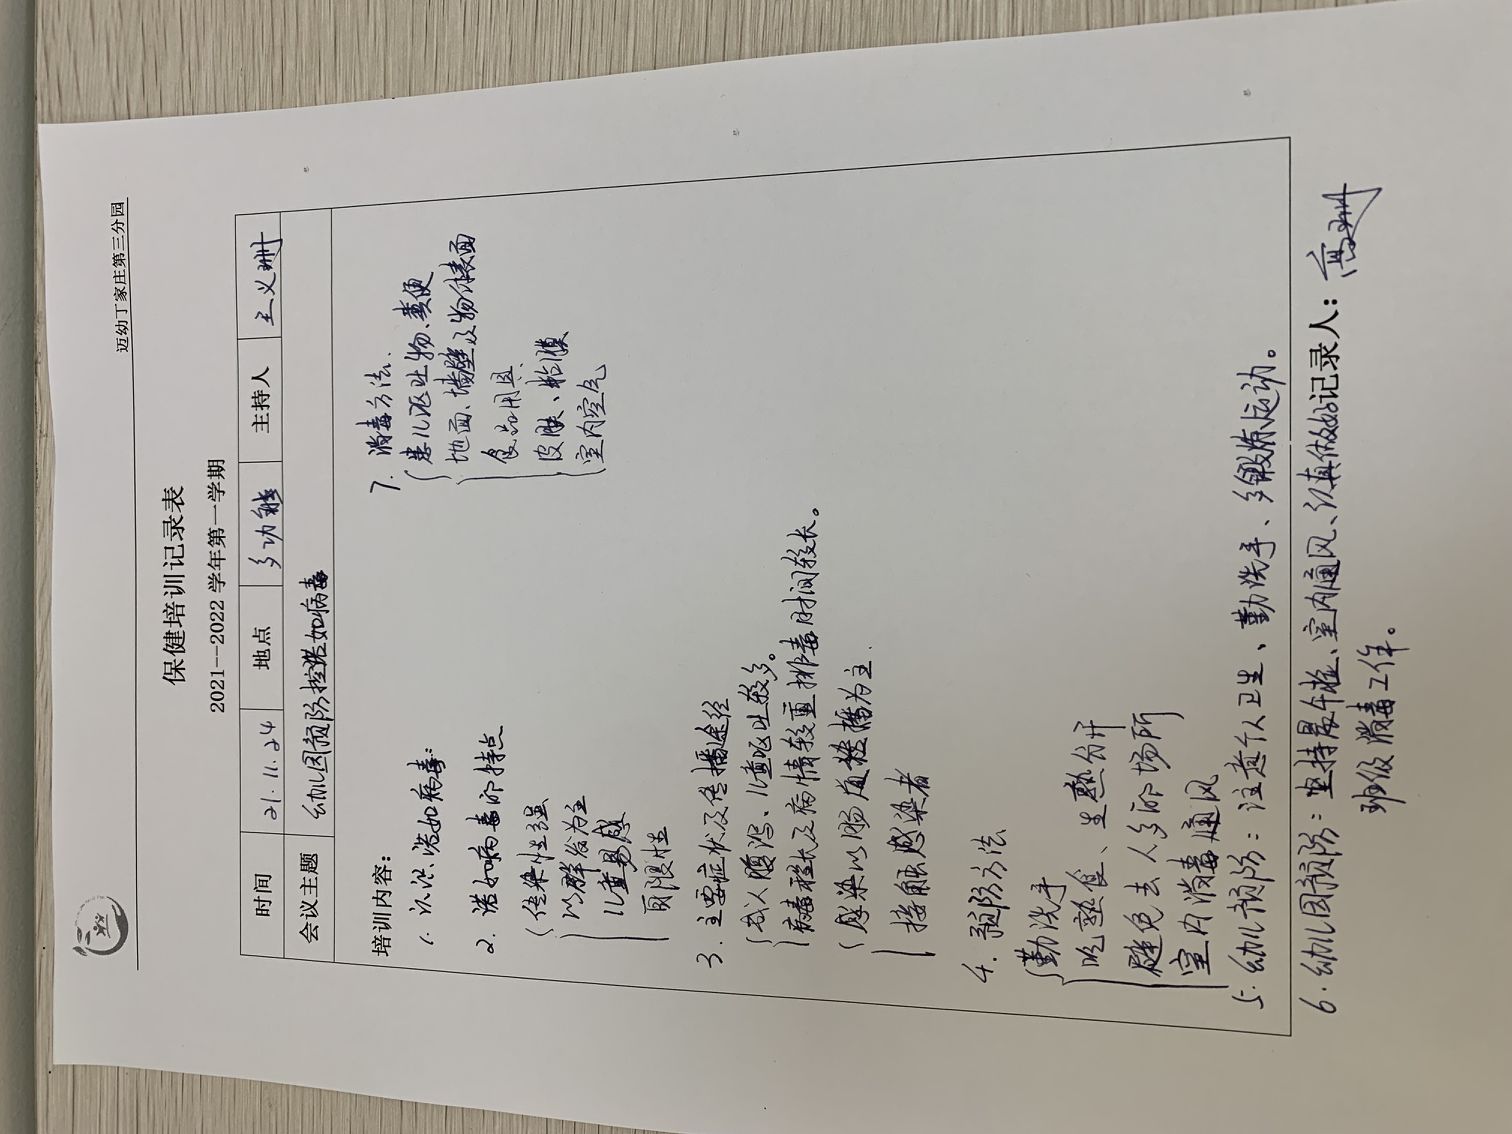 迈幼丁家庄第三分园
保健培训记录表
2021--2022 学年第一学期
时间 21.11.24 地点 多功能 主持人 王义珊
会议主题 幼儿园预防控诺如病毒
培训内容：
1. 认识诺如病毒:
2. 诺如病毒的特点
传染性强
以群发为主
儿童易感
局限性
3. 主要症状及传播途径
成人腹泻、儿童呕吐较多。
病毒程长及病情较重排毒时间较长。
感染以肠道传播为主.
接触感染者
4. 预防方法
勤洗手
吃熟食、生熟分开
避免去人多的场所
室内消毒通风
5. 幼儿预防：注意个人卫生、勤洗手、多锻炼运动。
6. 幼儿园预防：坚持晨午检、室内通风、认真做好
班级消毒工作。
7. 消毒方法.
患儿呕吐物、粪便
地面、墙壁及物体表面
食品用具
皮肤、粘膜
室内空气
记录人：高珊